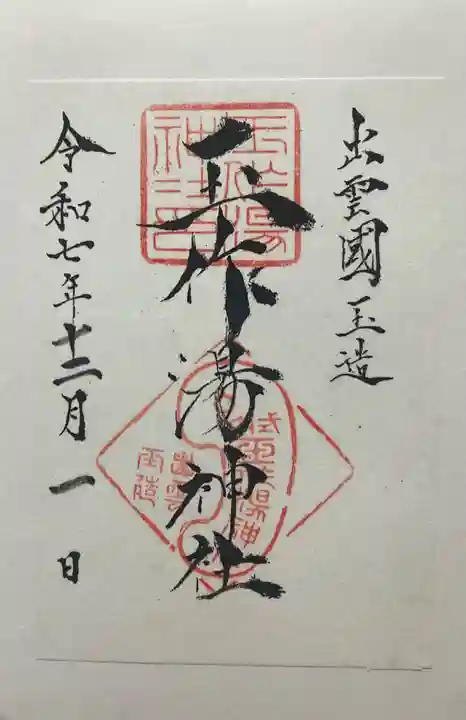 出雲國玉造
玉作湯神社
令和七年十二月一日
玉作湯
神社印
出雲
玉造